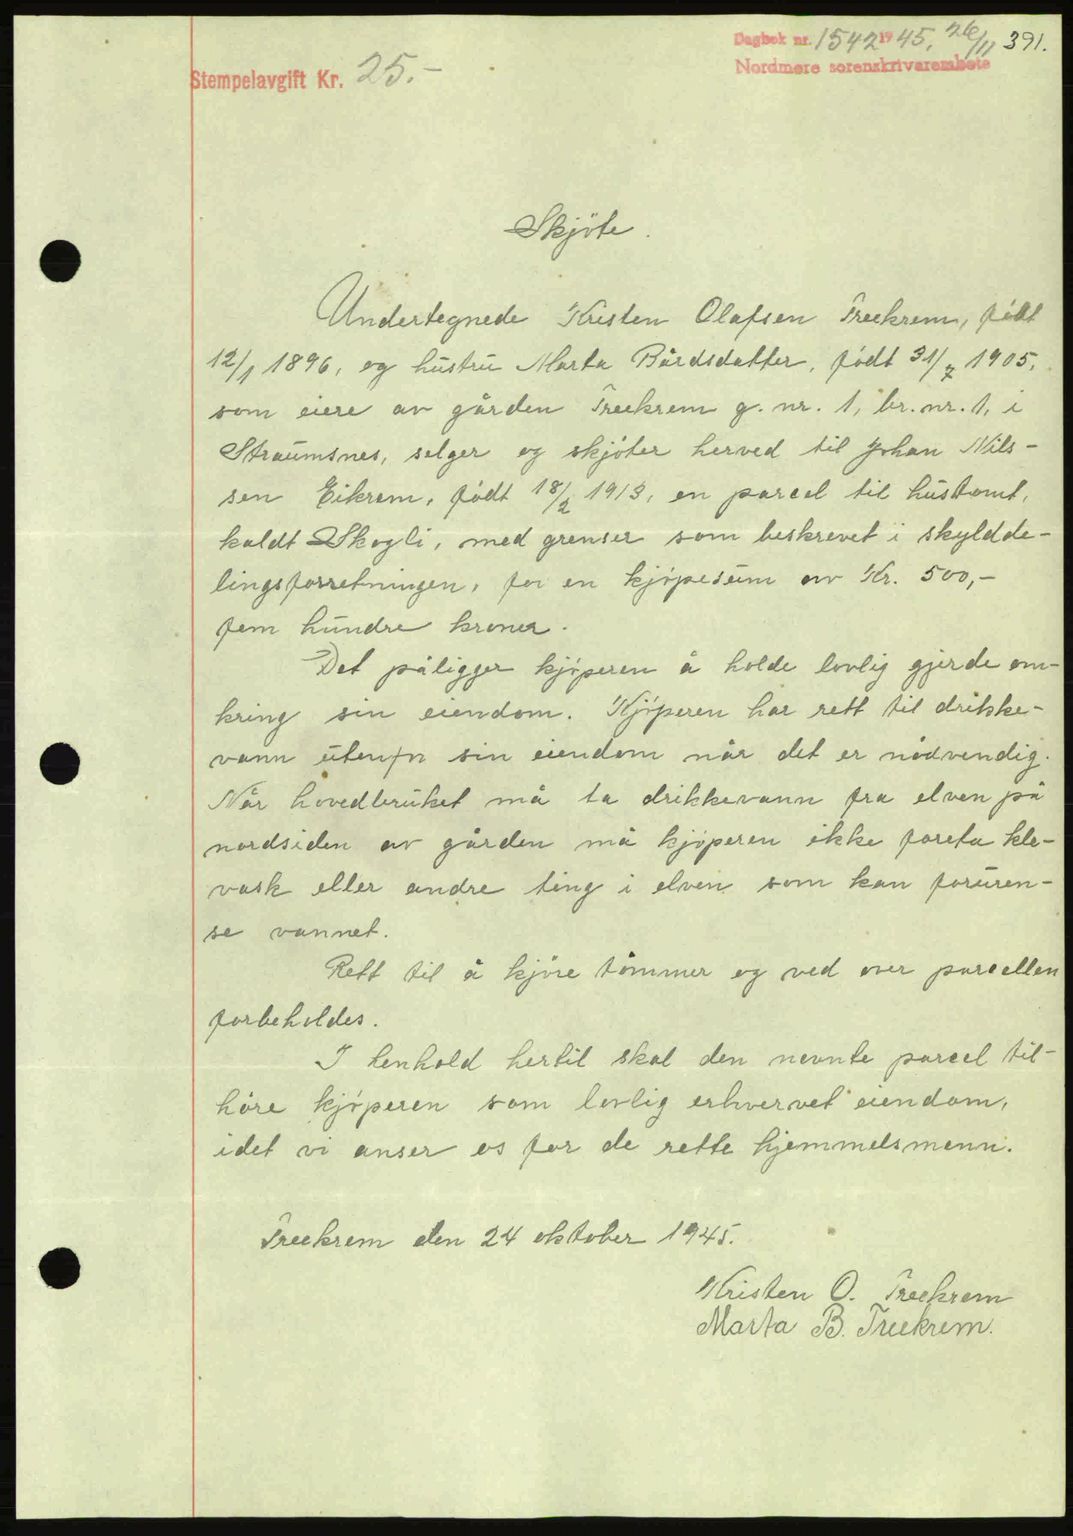 Dagbok nr. 1542 1945, 26/11 391.
Nordmøre sorenskrivarembete
Stempelavgift Kr. 25.-
Skjöte.
Undertegnede Kristen Olafsen Treekrem, født
12/1 1896, og hustru Marta Bårdsdatter, født 31/7 1905,
som eiere av gården Treekrem g. nr. 1, br. nr. 1, i
Straumsnes, selger og skjøter herved til Johan Nils-
sen Eikrem, født 18/2 1913, en parcel til hustomt,
kaldt Skogli, med grenser som beskrevet i skyldde-
lingsforretningen, for en kjøpesum av Kr. 500,-
fem hundre kroner.
Det påligger kjøperen å holde lovlig gjerde om-
kring sin eiendom. Kjøperen har rett til drikke-
vann utenfor sin eiendom når det er nödvendig.
Når hovedbruket må ta drikkevann fra elven på
nordsiden av gården må kjøperen ikke foreta kle-
vask eller andre ting i elven som kan foruren-
se vannet.
Rett til å kjöre tömmer og ved over parcellen
forbeholdes.
I henhold hertil skal den nevnte parcel til-
höre kjøperen som lovlig erhvervet eiendom,
idet vi anser os for de rette hjemmelsmenn.
Treekrem den 24 oktober 1945.
Kristen O. Treekrem
Marta B. Treekrem.